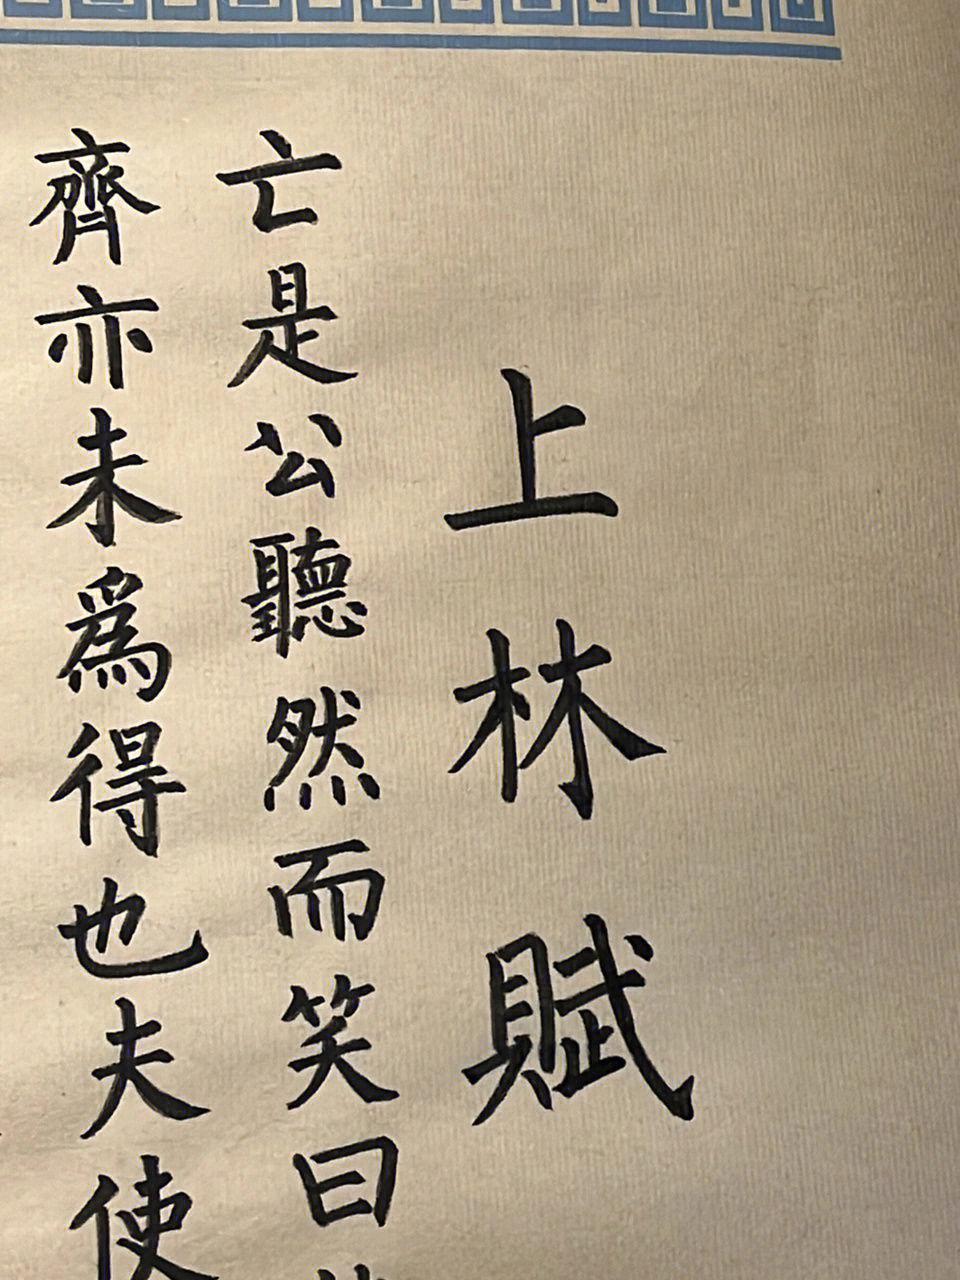 上林賦
亡是公聽然而笑曰
齊亦未爲得也夫使